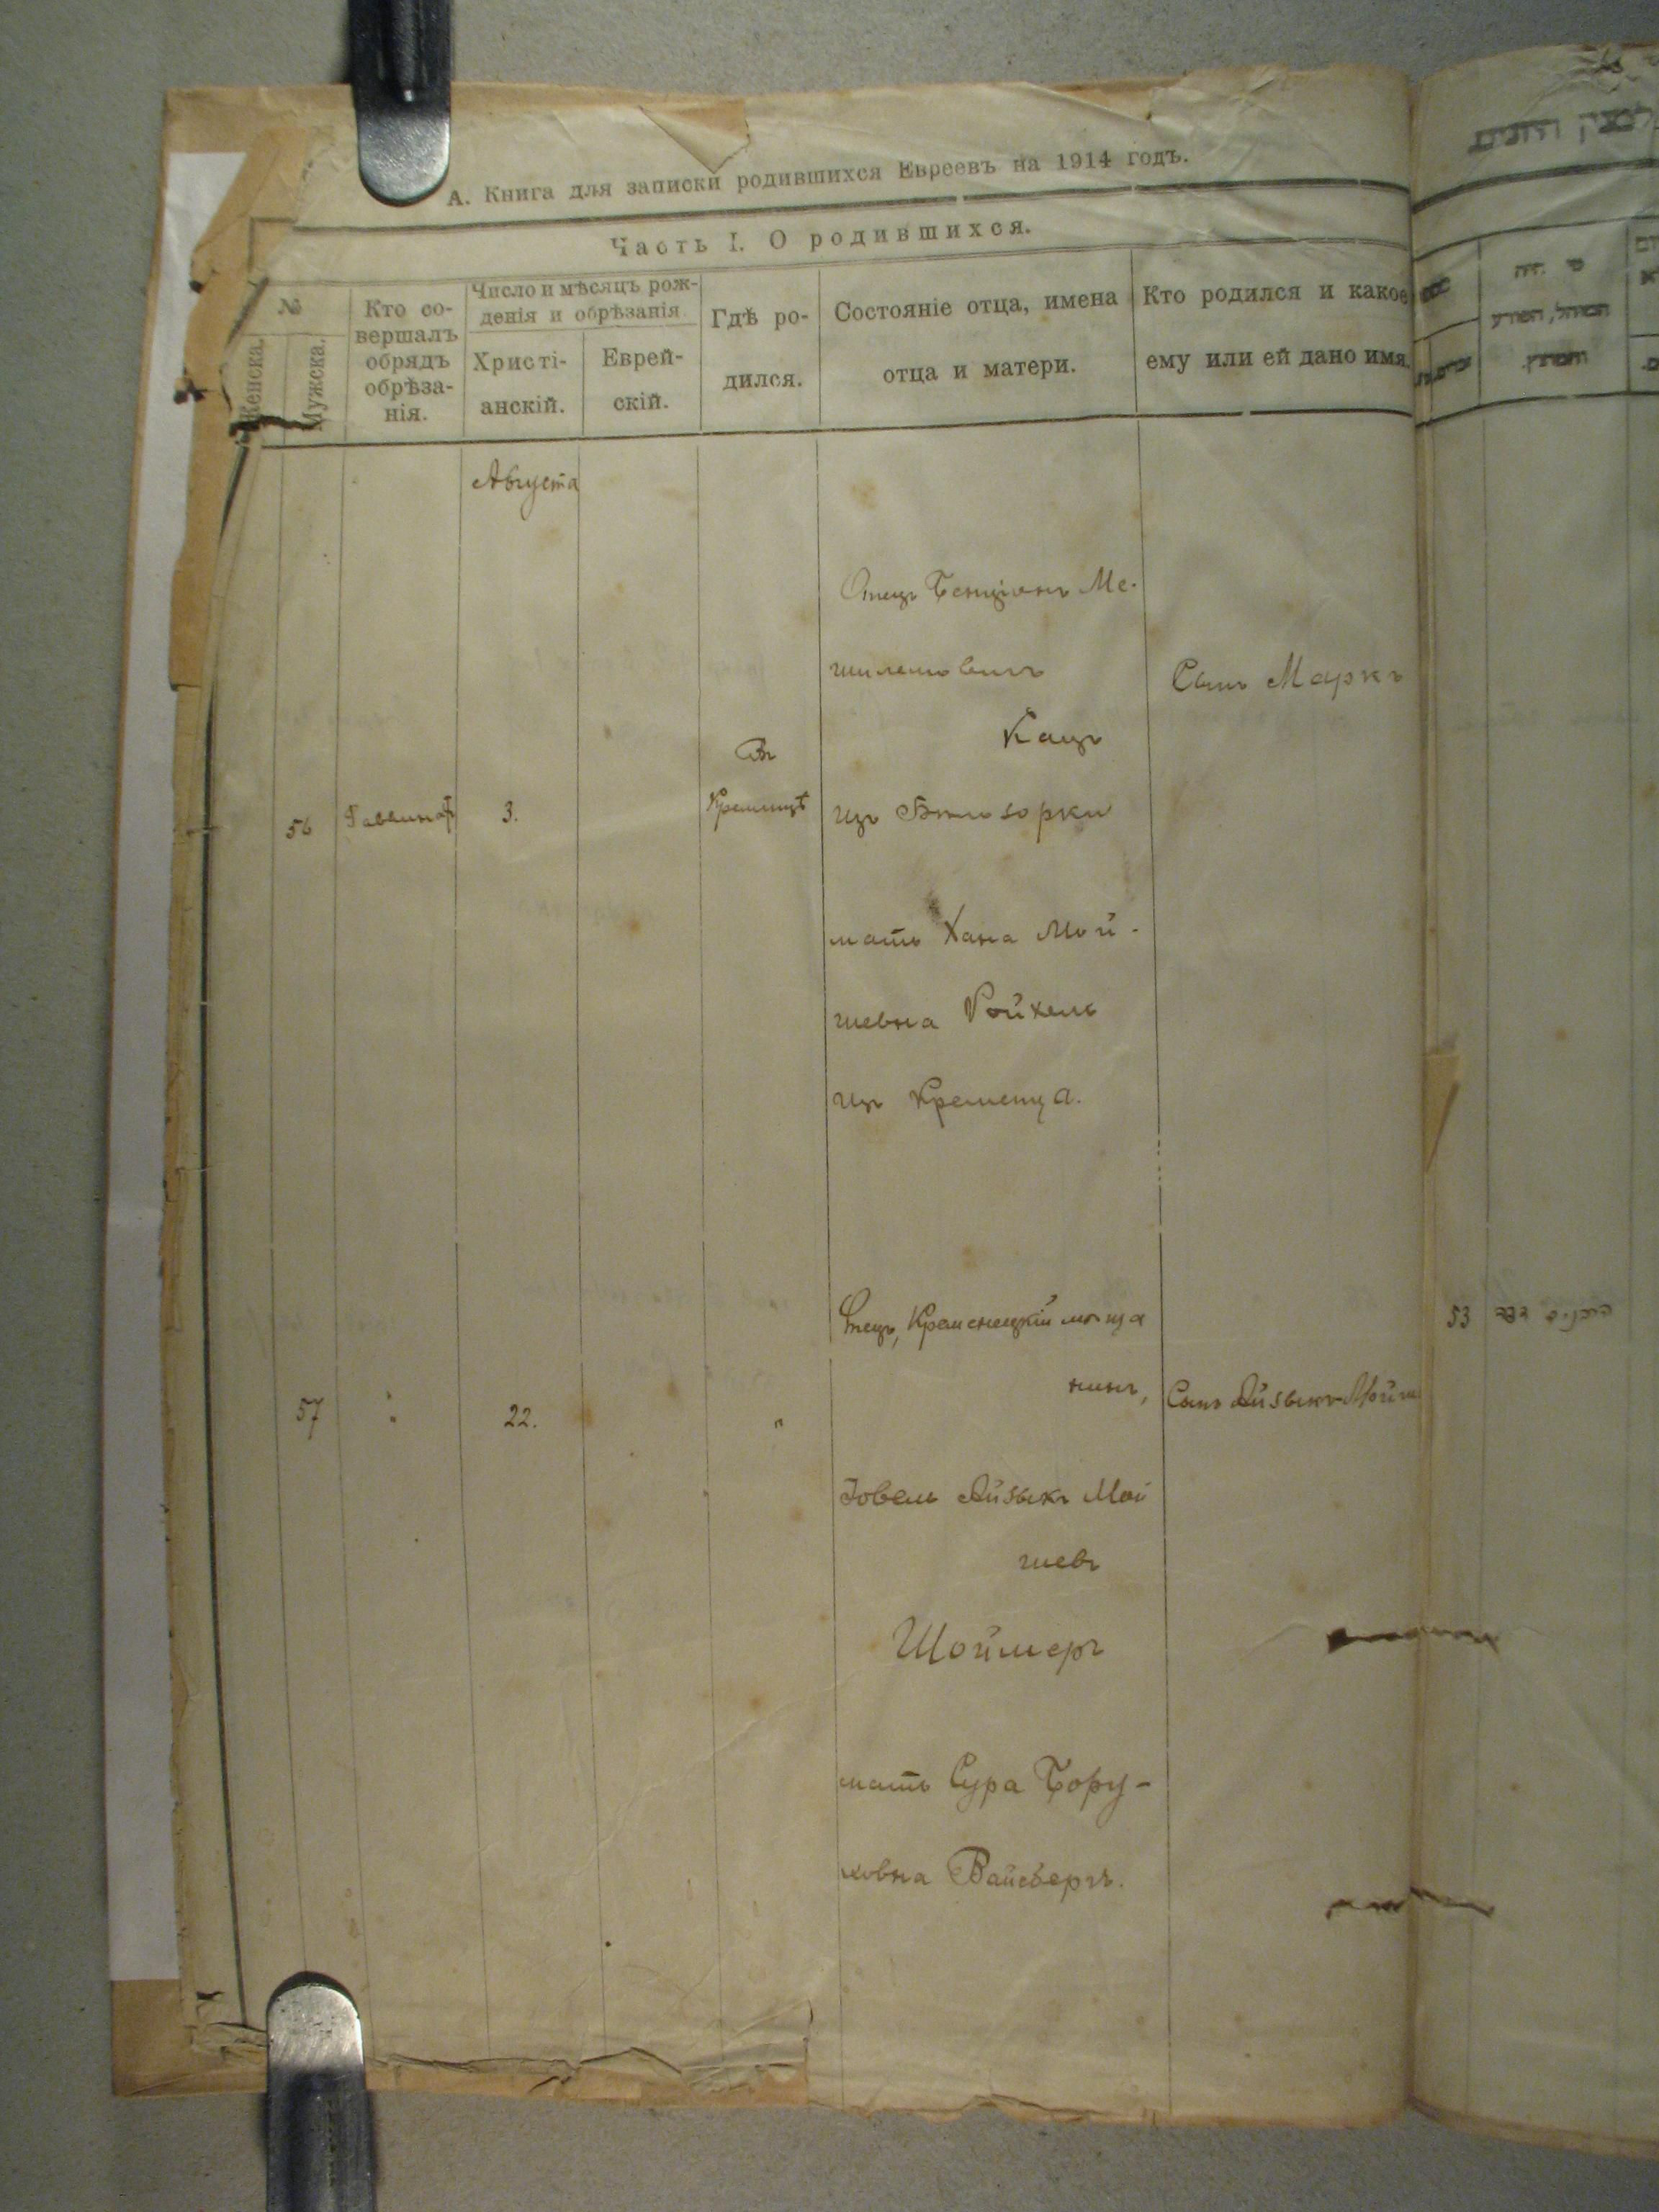 А. Книга для записки родившихся Евреевъ на 1914 годъ.
Часть I. О родившихся.
№
Женска.
Мужска.
Кто со-
вершалъ
обрядъ
обрѣза-
нія.
Число и мѣсяцъ рож-
денія и обрѣзанія
Христі-
анскій.
Еврей-
скій.
Гдѣ ро-
дился.
Состояніе отца, имена
отца и матери.
Кто родился и какое
ему или ей дано имя.
Августа
56
3.
Въ
Кременцѣ
Отецъ Бенціонъ Ме-
шилемовичъ
Кацъ
изъ Бѣлозорки
мать Хана Мой-
шевна Ройхель
изъ Кременца.
Сынъ Маркъ
57
22.
"
Отецъ, Кременецкій мѣща
нинъ,
Іовель Айзыкъ Мой
шевъ
Шоймеръ
мать Сура Бору-
ховна Вайсбергъ.
Сынъ Айзыкъ-Мойше
53